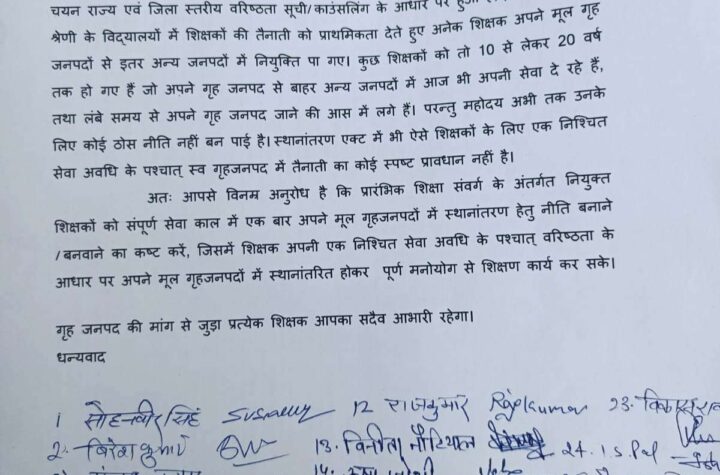 चयन राज्य एवं जिला स्तरीय वरिष्ठता सूची/काउंसलिंग के आधार पर हुआ
श्रेणी के विद्यालयों में शिक्षकों की तैनाती को प्राथमिकता देते हुए अनेक शिक्षक अपने मूल गृह
जनपदों से इतर अन्य जनपदों में नियुक्ति पा गए। कुछ शिक्षकों को तो 10 से लेकर 20 वर्ष
तक हो गए हैं जो अपने गृह जनपद से बाहर अन्य जनपदों में आज भी अपनी सेवा दे रहे हैं,
तथा लंबे समय से अपने गृह जनपद जाने की आस में लगे हैं। परन्तु महोदय अभी तक उनके
लिए कोई ठोस नीति नहीं बन पाई है। स्थानांतरण एक्ट में भी ऐसे शिक्षकों के लिए एक निश्चित
सेवा अवधि के पश्चात् स्व गृहजनपद में तैनाती का कोई स्पष्ट प्रावधान नहीं है।
अतः आपसे विनम्र अनुरोध है कि प्रारंभिक शिक्षा संवर्ग के अंतर्गत नियुक्त
शिक्षकों को संपूर्ण सेवा काल में एक बार अपने मूल गृहजनपदों में स्थानांतरण हेतु नीति बनाने
/बनवाने का कष्ट करें, जिसमें शिक्षक अपनी एक निश्चित सेवा अवधि के पश्चात् वरिष्ठता के
आधार पर अपने मूल गृहजनपदों में स्थानांतरित होकर पूर्ण मनोयोग से शिक्षण कार्य कर सके।
गृह जनपद की मांग से जुड़ा प्रत्येक शिक्षक आपका सदैव आभारी रहेगा।
धन्यवाद
1 सोहनवीर सिंह 12 राजकुमार Rajkumar 23.
2. 13. विनीता नौटियाल 24. I.S. Pal
14.